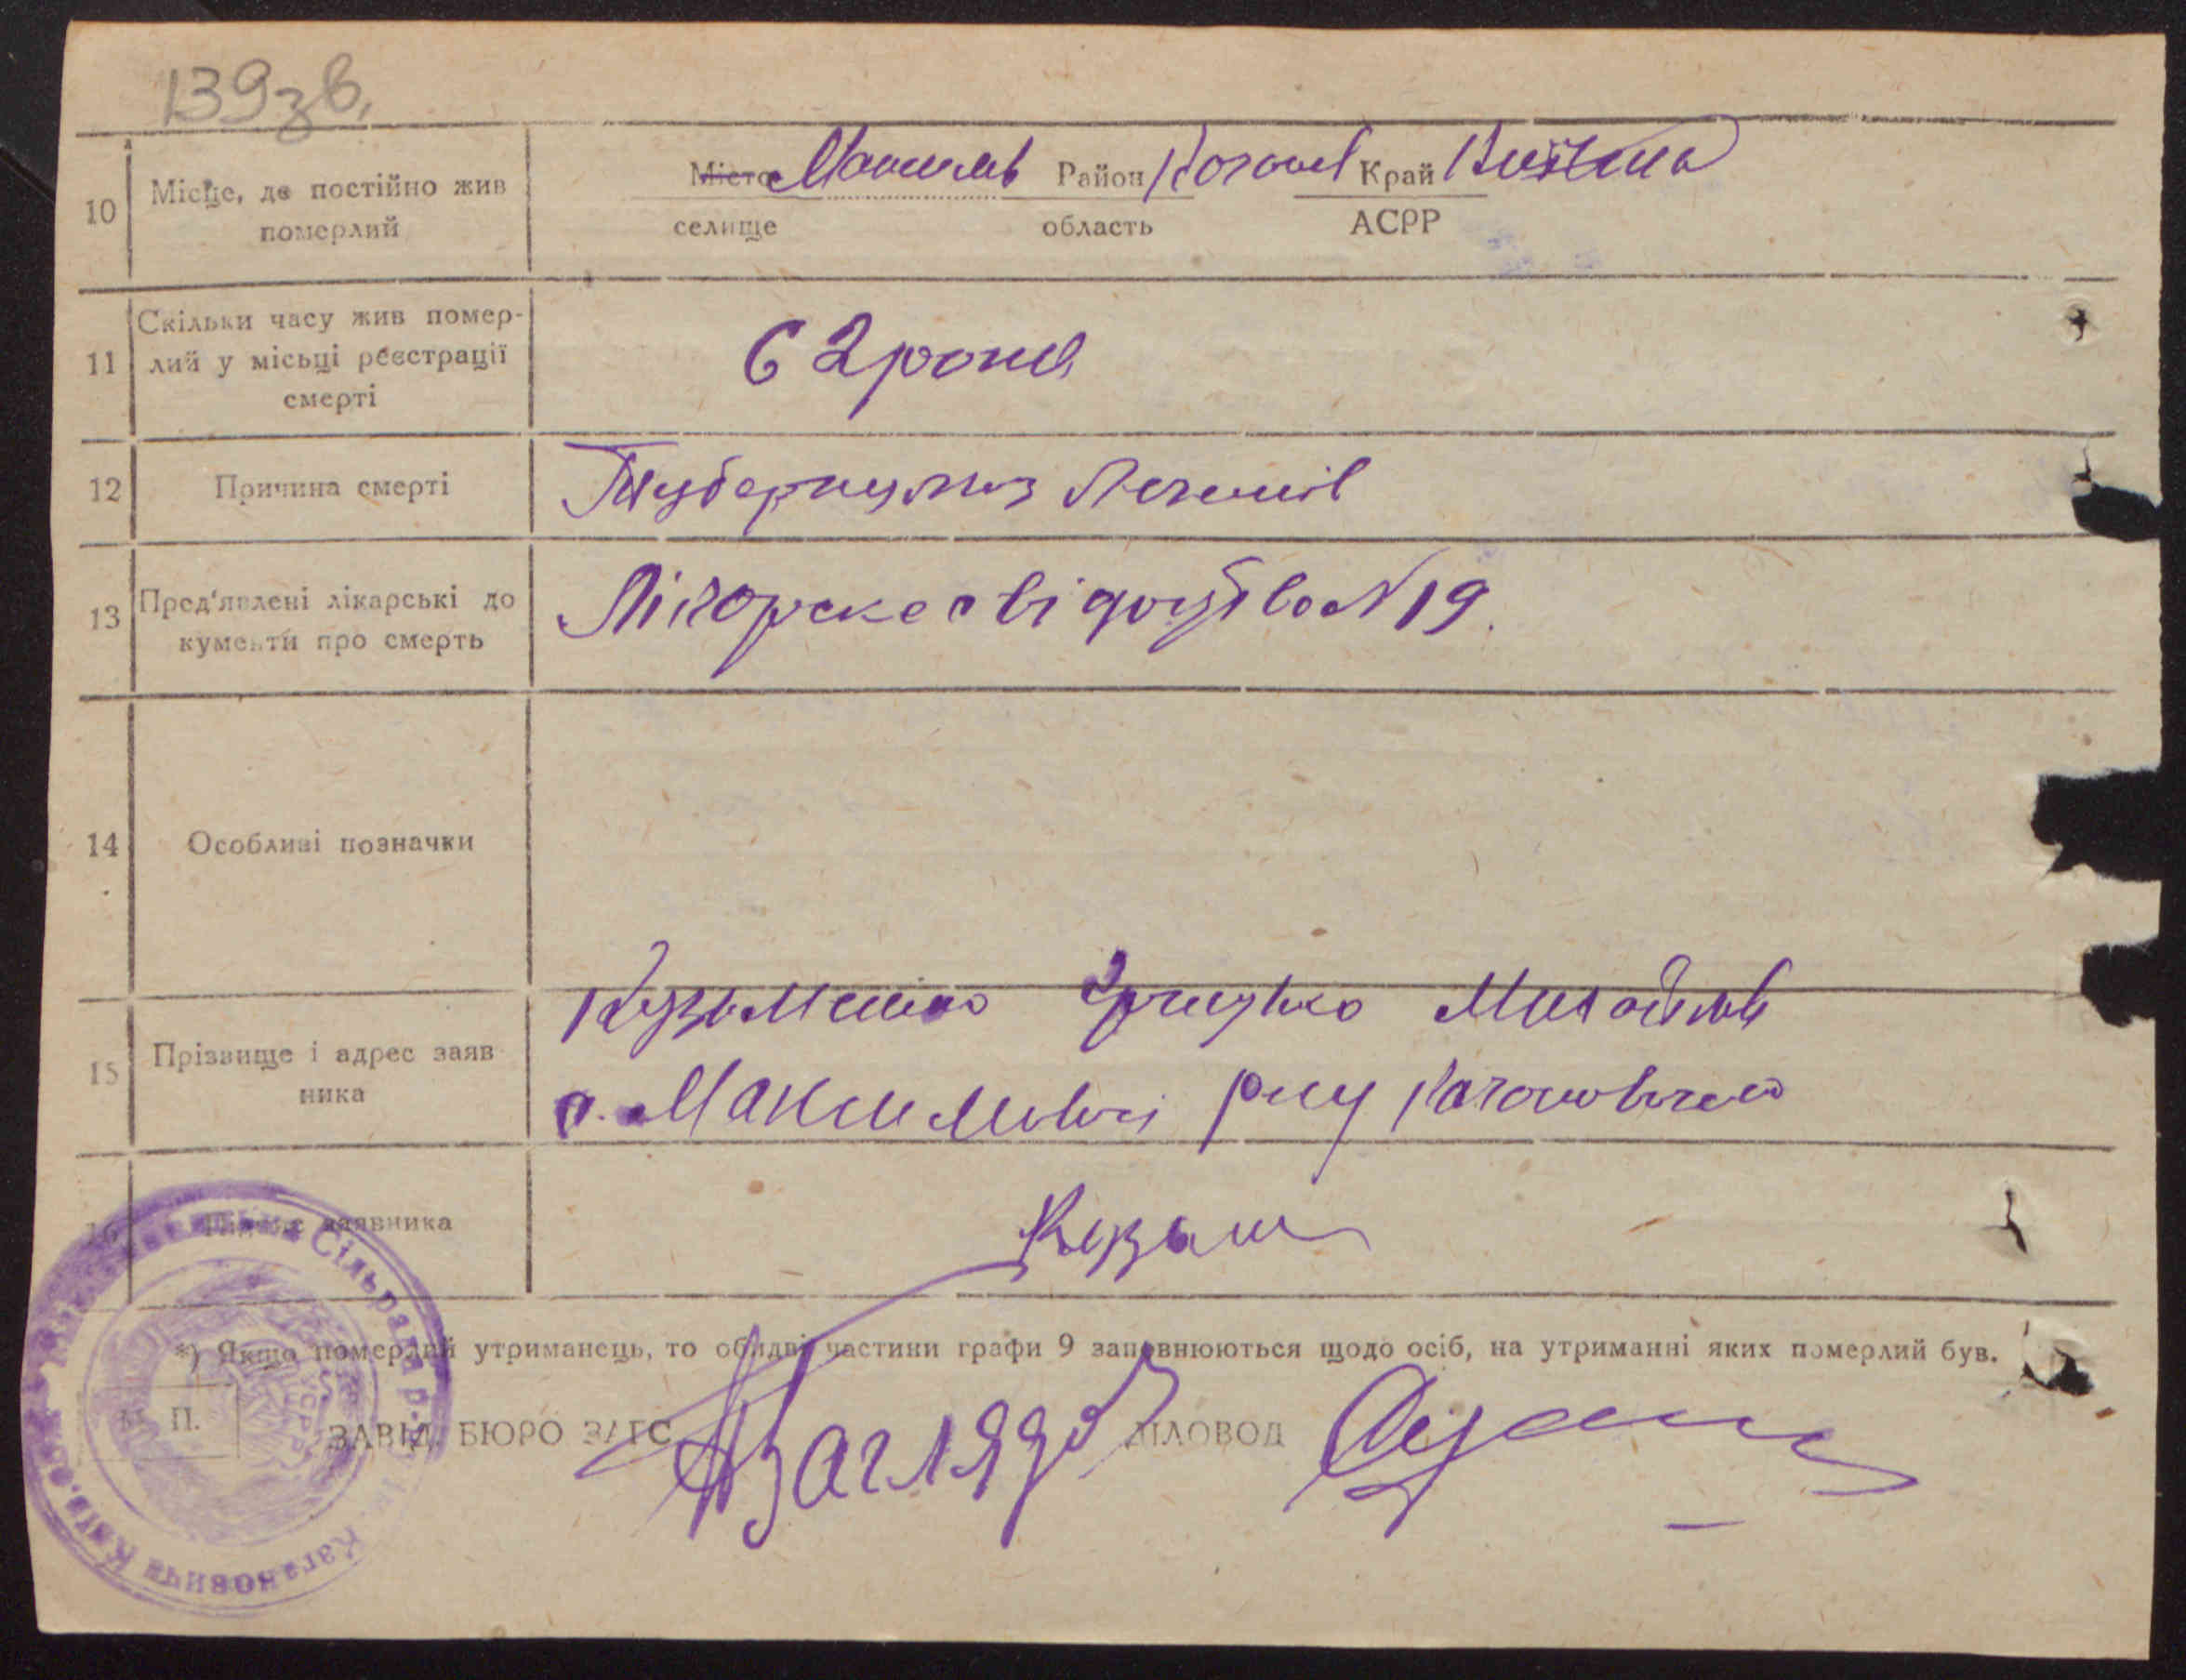 139зв.
10 Місце, де постійно жив померлий
Місто Район Край
селище область АСРР
11 Скільки часу жив помер-
лий у місьці реєстрації
смерті
62 роки
12 Причина смерті Туберкульоз Легенів
13 Пред'явлені лікарські до
кументи про смерть
Лікорске свідоцтво №19.
14 Особливі позначки
15 Прізвище і адрес заяв
ника
Кузьменко Грицько
с. Максимовичі р-ну Кагоновичого
16 Підпис заявника Кузьм
*) Якщо померлий утриманець, то обидві частини графи 9 заповнюються щодо осіб, на утриманні яких померлий був.
М. П.
ЗАВІД. БЮРО ЗАГС ДІЛОВОД
Сільрада р-ну ім. Кагановича Київ.
УСРР